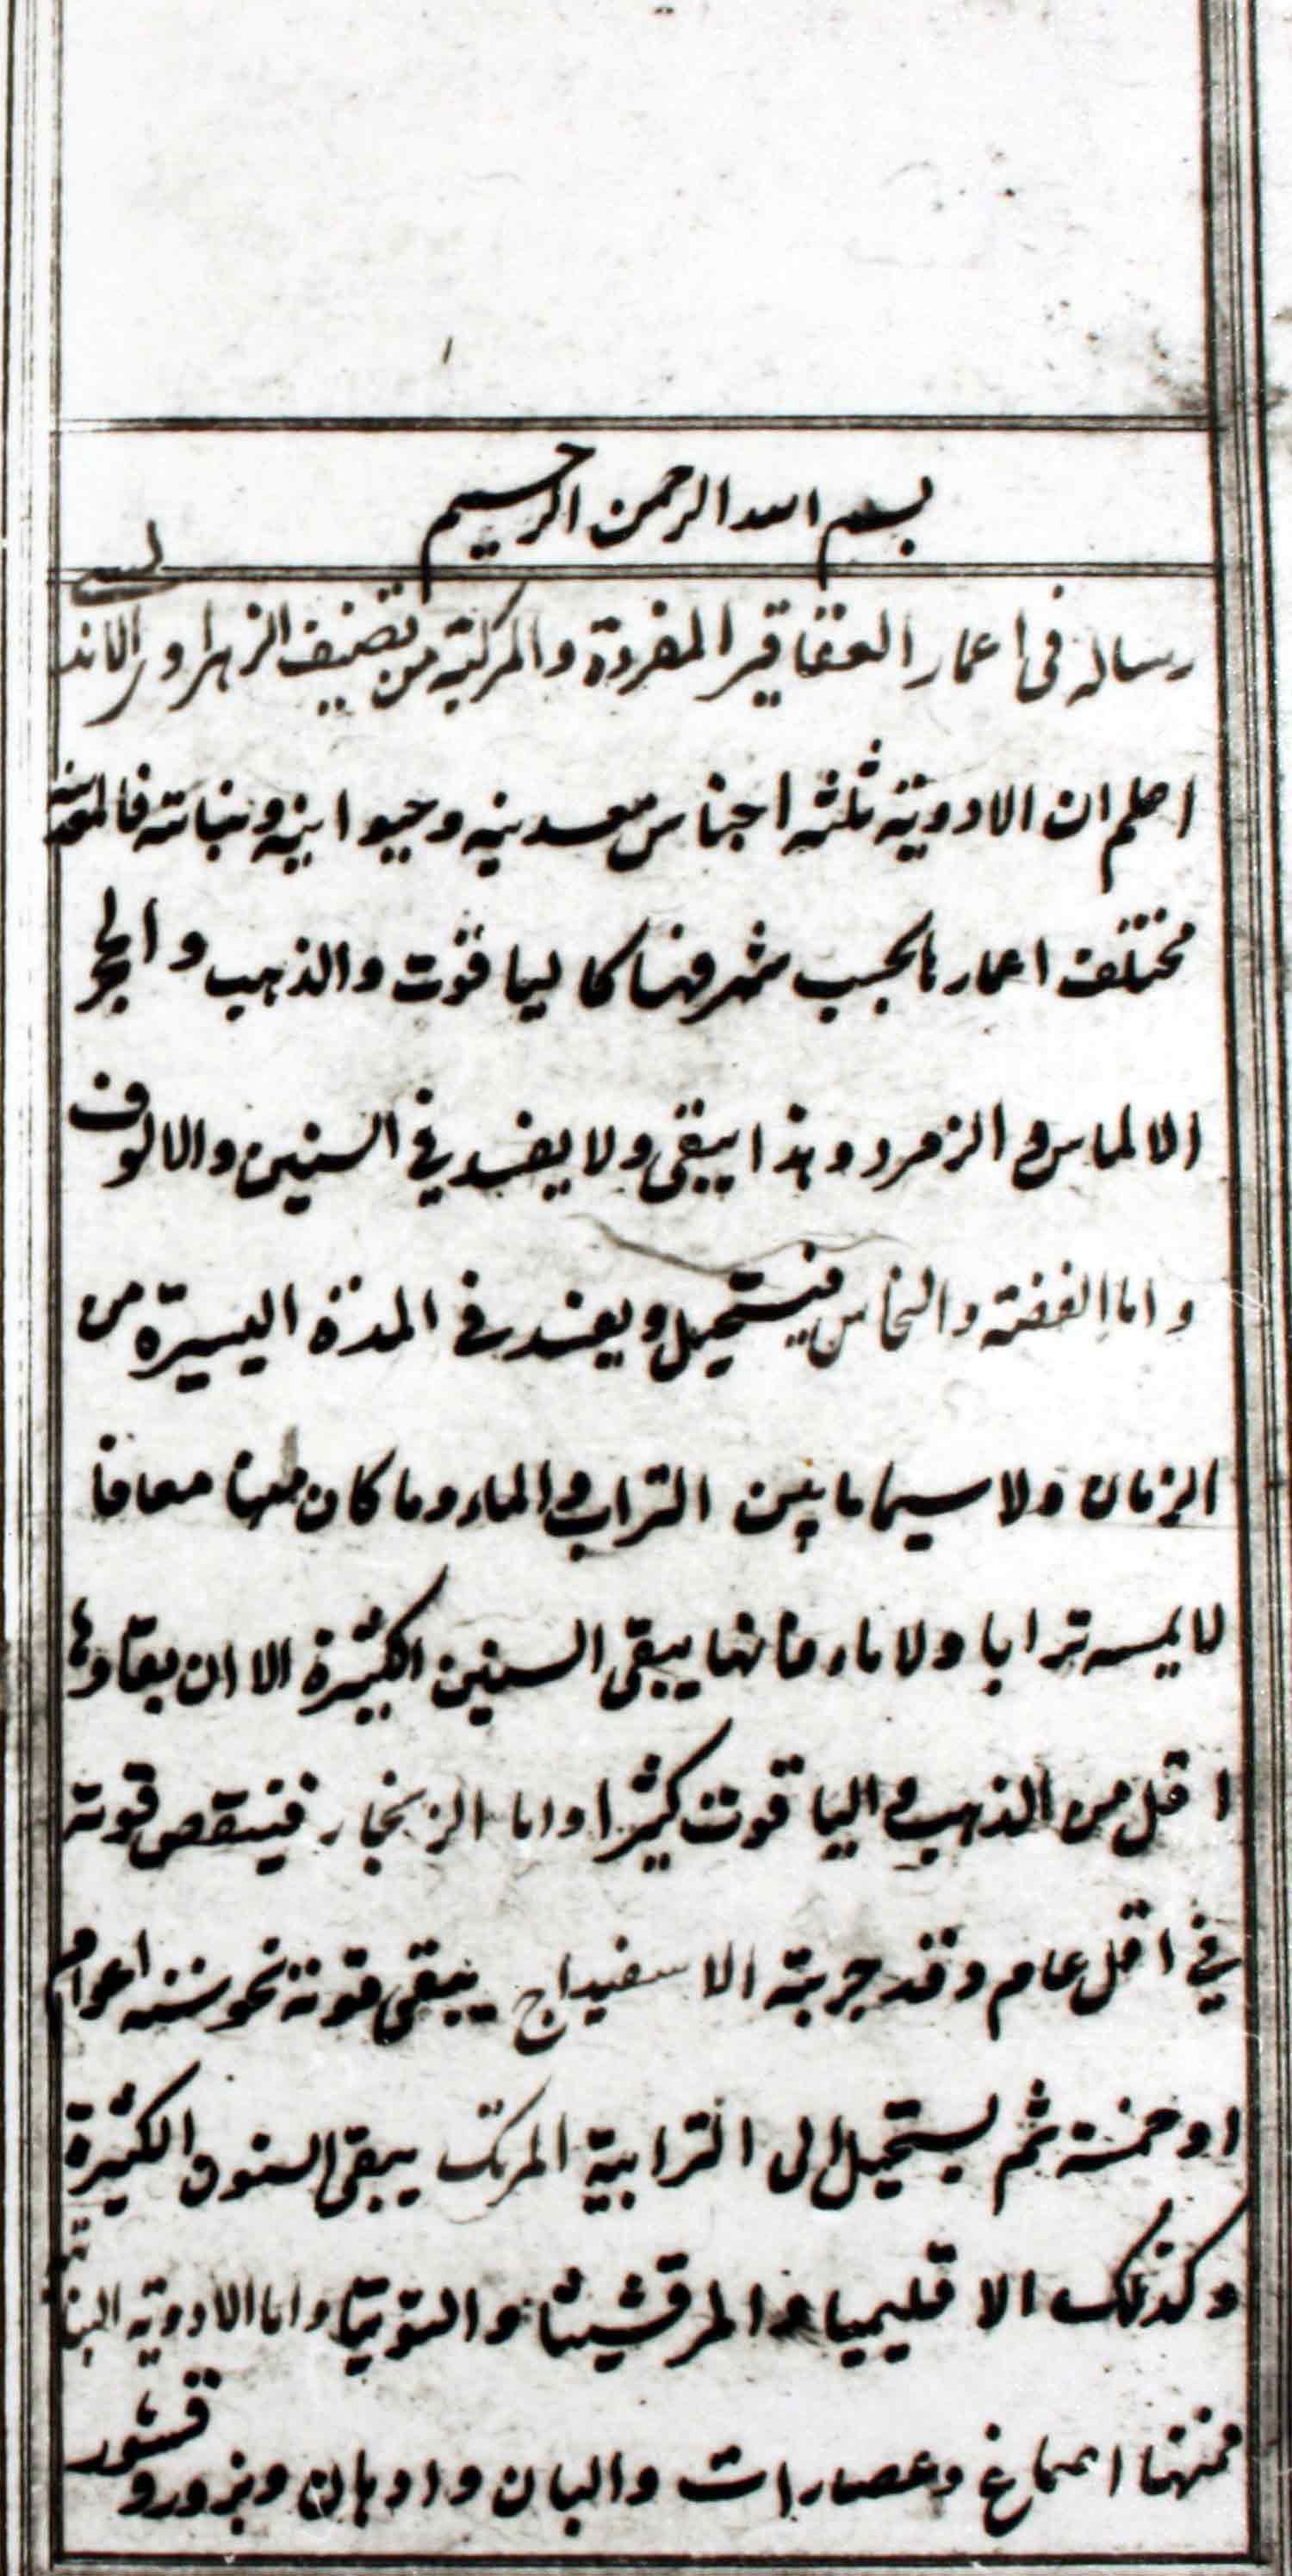 بسم الله الرحمن الرحيم
رساله فى اعمار العقاقير المفردة والمركبة من تصنيف الزهراوى الاندلسى
اعلم ان الادوية ثلثه اجناس معدنيه وحيوانيه ونباتيه فالمعدنيه
مختلف اعمارها بحسب شرفها كاليا قوت والذهب والحجر
الالماس و الزمرد وهذا يبقى ولا يفسد في السنين والالوف
واما الفضة والنحاس فيستحيل ويفسد فى المدة اليسيرة من
الزمان ولا سيما ما بين التراب والماء وما كان منها معافا
لا يمسه ترابا ولا ماء فانها يبقى السنين الكثيرة الا ان بقاوها
اقل من الذهب و اليا قوت كثيرا واما الزنجار فينقص قوته
في اقل عام وقد جربته الاسفيداج يبقى قوته نحو سته اعوام
او خمسة ثم يستحيل الى الترابية المرتك يبقى السنون الكثيرة
وكذلك الاقليميا و المرقشيثا والتوتيا واما الادوية النباتية
فمنها اصماغ وعصارات والبان وادهان وبزور وقشور